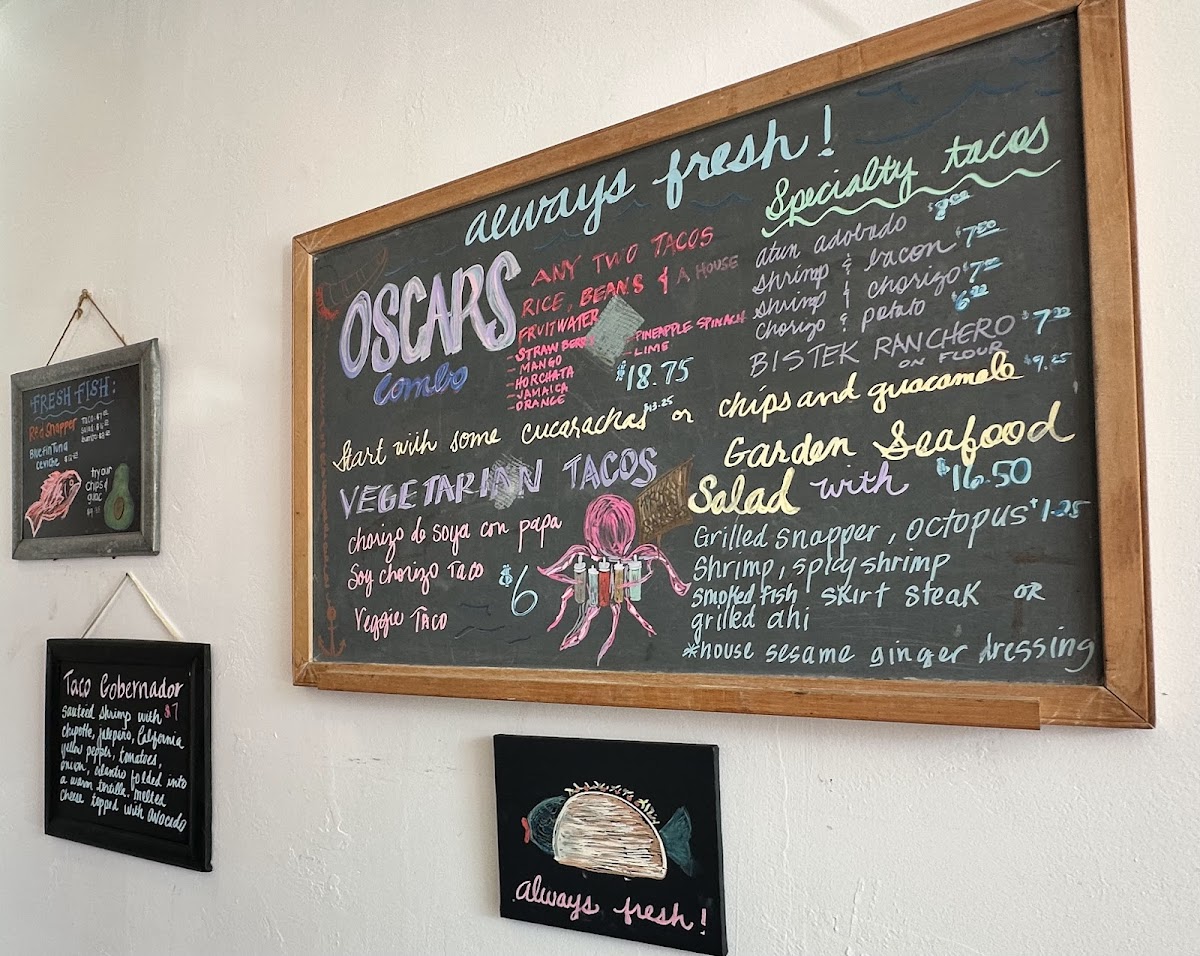 always fresh!
OSCARS
Combo
ANY TWO TACOS
RICE, BEANS & A HOUSE
FRUITWATER
- STRAWBERRY
- MANGO
- HORCHATA
- JAMAICA
- ORANGE
- PINEAPPLE SPINACH
- LIME
$18.75
Specialty tacos
atun adobado $8.00
shrimp & bacon $7.50
shrimp & chorizo $7.
chorizo & potato $6.
BISTEK RANCHERO $7.
ON FLOUR
Start with some cucarachas $13.25 or chips and guacamole $9.25
VEGETARIAN TACOS
chorizo de soya con papa
Soy chorizo Taco
Veggie Taco
$6
Garden Seafood
Salad with $16.50
Grilled snapper, octopus + 1.25
Shrimp, spicy shrimp
smoked fish skirt steak OR
grilled ahi
*house sesame ginger dressing
FRESH FISH:
Red Snapper
Taco:
Salad:
burrito
Bluefin Tuna
ceviche
try our
chips &
guac
Taco Gobernador
sauteed shrimp with $7
chipotle, jalapeño, California
yellow pepper, tomatoes,
onion, cilantro folded into
a warm tortilla.. melted
cheese topped with avocado
always fresh!